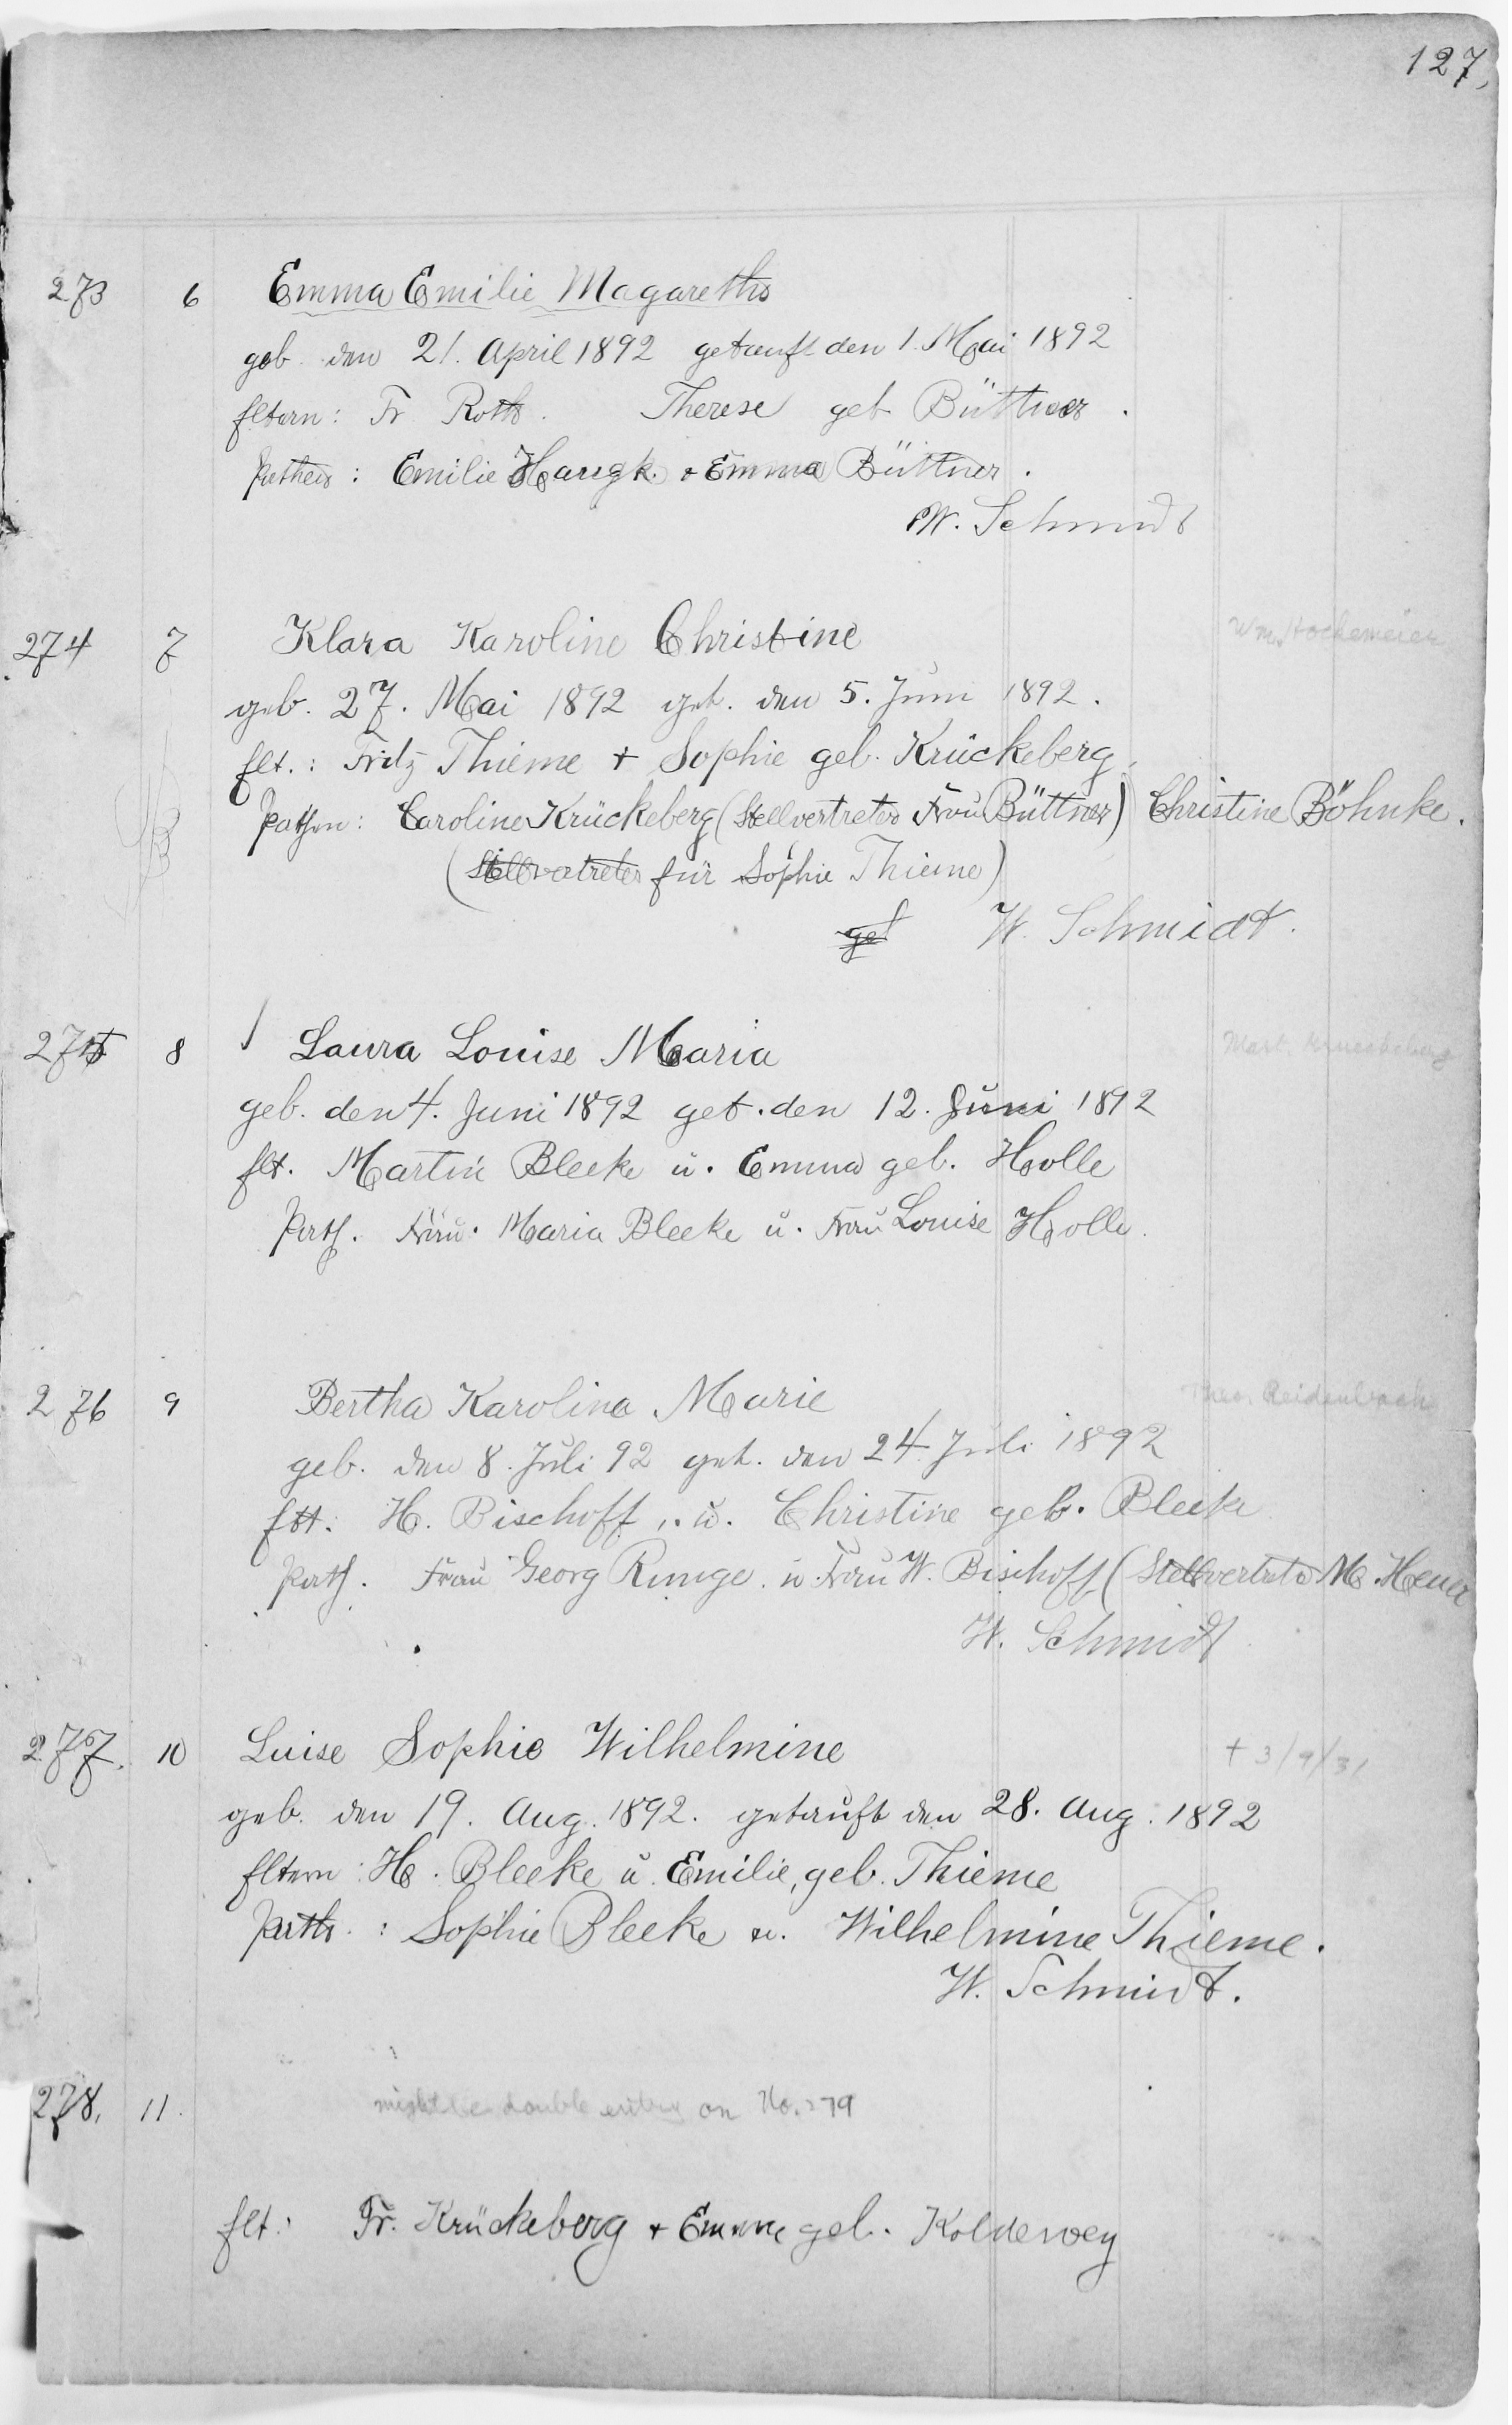 127,
273 6 Emma Emilie Magarethe
geb. den 21. April 1892 getauft den 1. Mai 1892
Eltern: Fr Roth. Therese geb Büttner.
Pathen: Emilie Hangk. + Emma Büttner.
W. Schmidt
274 7 Klara Karoline Christine Wm. Hockemeier
geb. 27. Mai 1892 get. den 5. Juni 1892.
Elt.: Fritz Thieme + Sophie geb. Krückeberg.
Pathen: Caroline Krückeberg (Stellvertreter Frau Büttner) Christine Böhnke.
(Stellvertreter für Sophie Thieme)
get W. Schmidt.
275 8 Laura Louise Maria Mart. Krueckeberg
geb. den 4. Juni 1892 get. den 12. Juni 1892
Elt. Martin Bleeke u. Emma geb. Holle
Path. Frau. Maria Bleeke u. Frau Louise Holle.
276 9 Bertha Karolina Marie Theo. Reidenbach
geb. den 8. Juli 92 get. den 24. Juli 1892
Elt. H. Bischoff, u. Christine geb. Bleeke
Path. Frau Georg Runge. u. Frau W. Bischoff (Stellvertreter M. Heuer
W. Schmidt
277. 10 Luise Sophie Wilhelmine + 3/9/31
geb. den 19. Aug. 1892. getauft den 28. Aug. 1892
Eltern: H. Bleeke u. Emilie, geb. Thieme
Path.: Sophie Bleeke u. Wilhelmine Thieme.
W. Schmidt.
278, 11. might be double entry on No. 279
Elt: Fr. Krückeberg + Emma geb. Koldewey